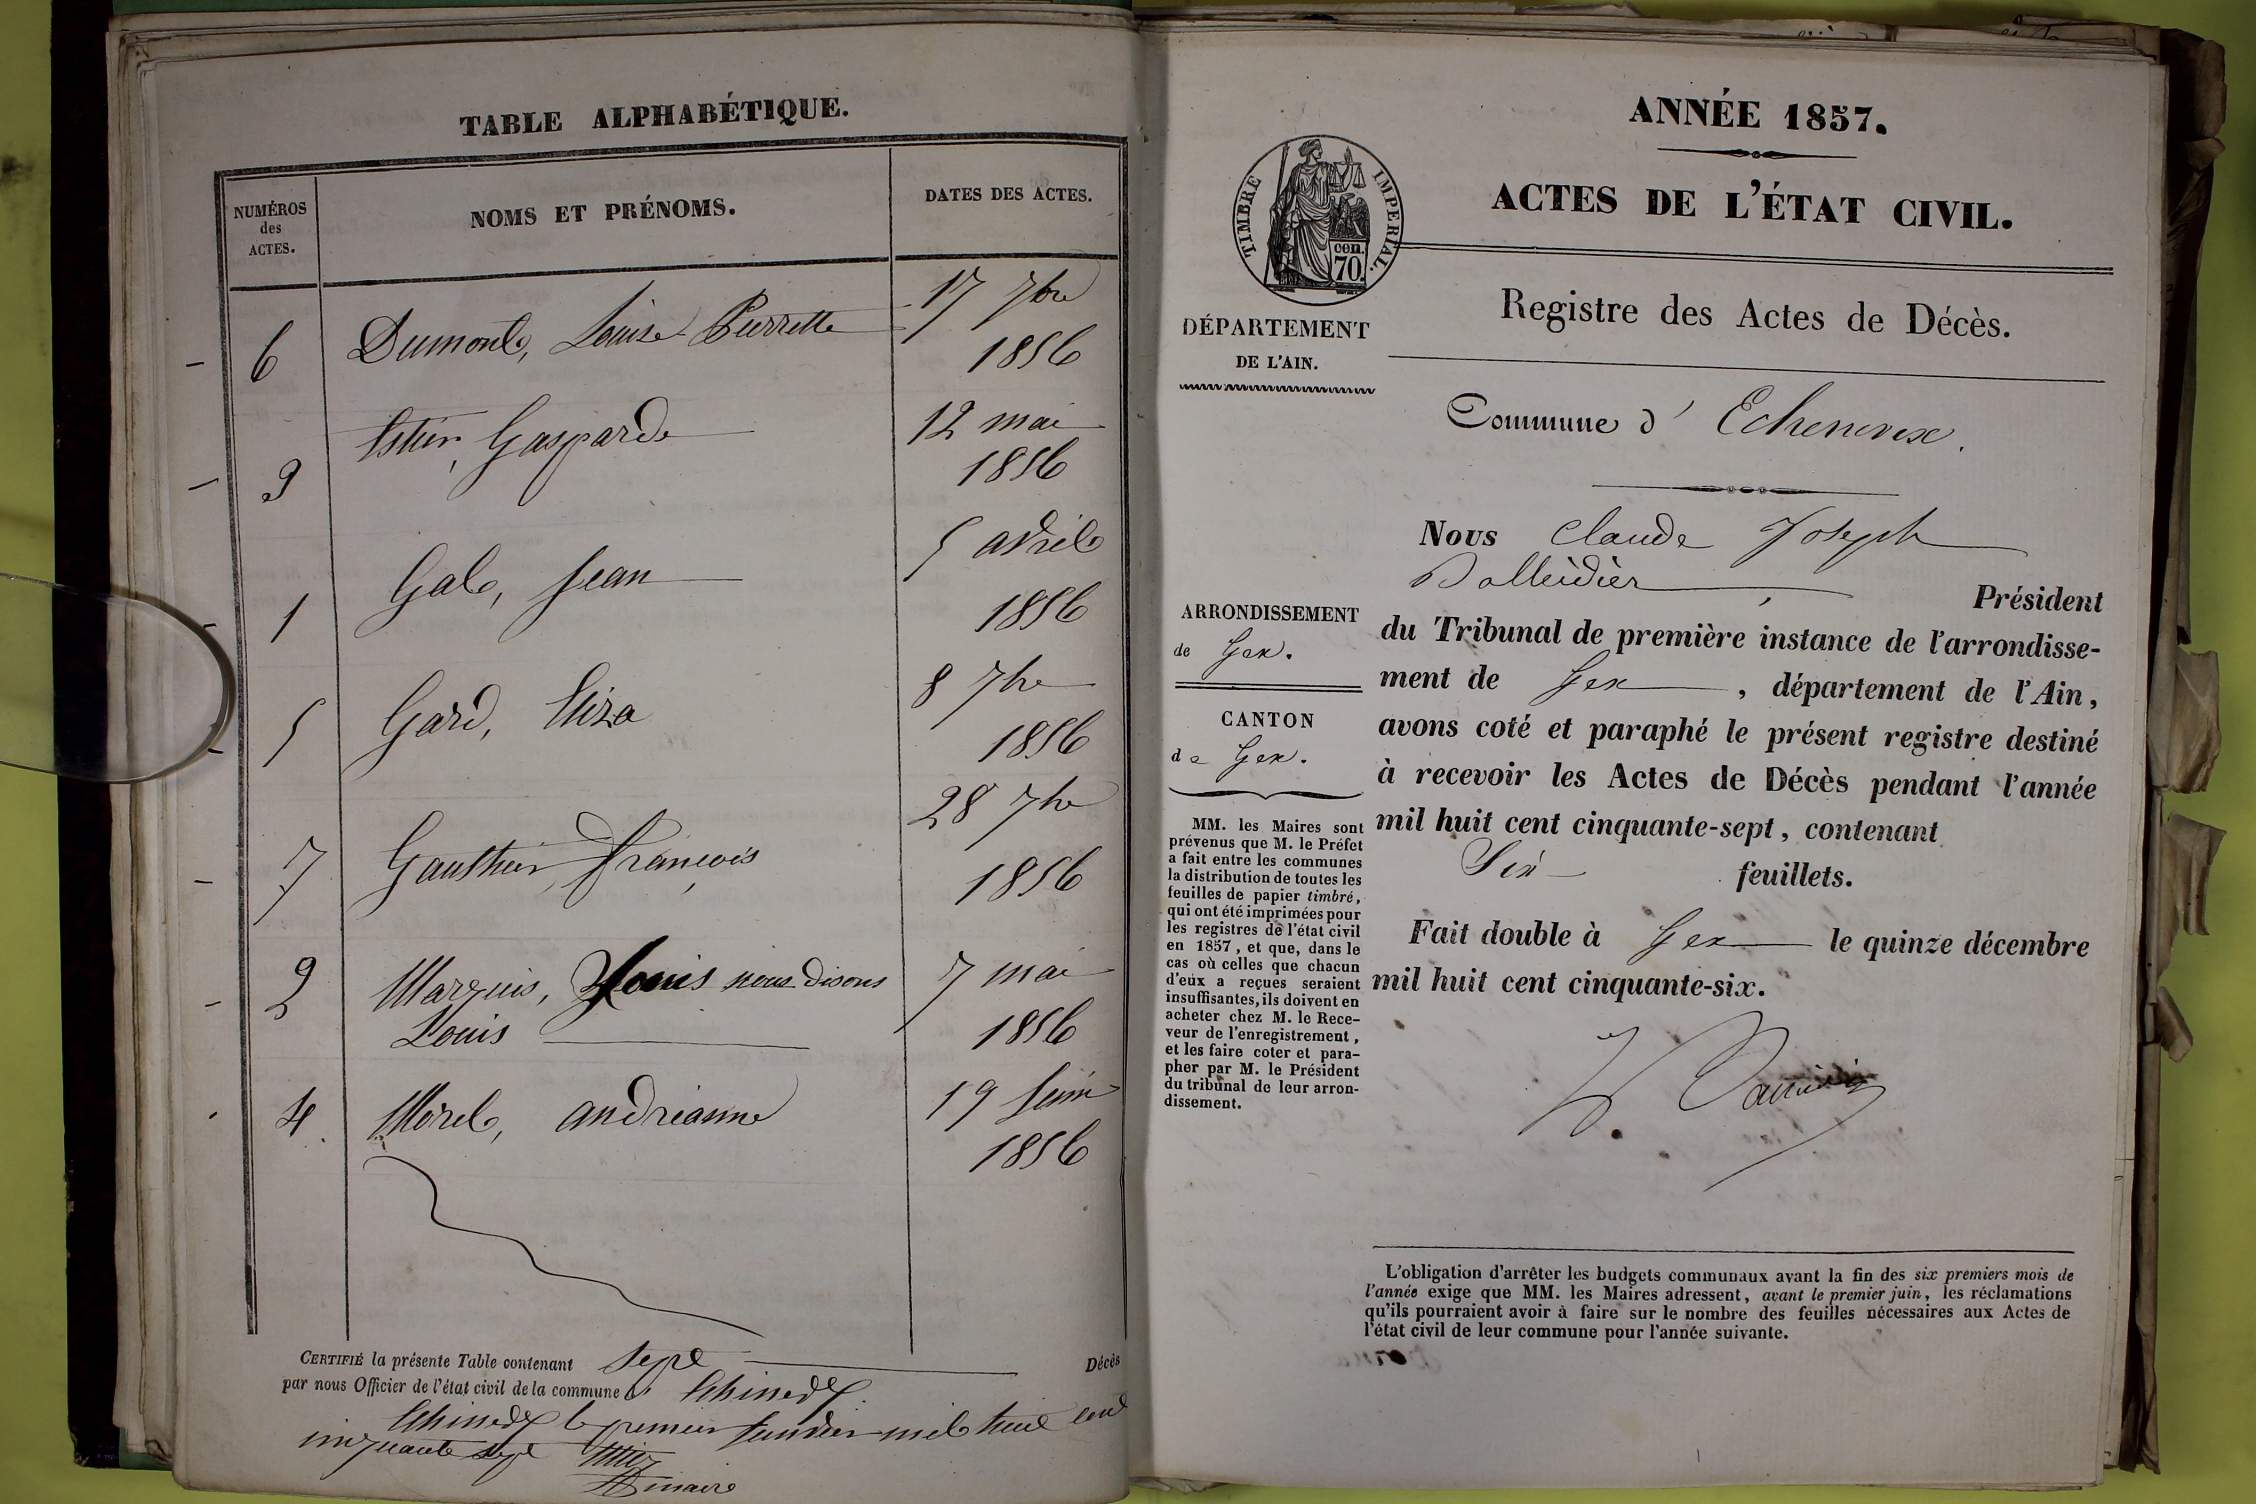 TABLE ALPHABÉTIQUE.
NUMÉROS
des
ACTES.
NOMS ET PRÉNOMS.
DATES DES ACTES.
6 Dumont, Louise Pierrette 17 7bre
1856
3 Gasparde 12 mai
1856
1 Gal, Jean 5 avril
1856
5 Gard, Eliza 8 7bre
1856
7 Gauthier, François 28 7bre
1856
2 Marquis, Louis nous disons 7 mai
Louis 1856
4 Morel, andrianne 19 Juin
1856
CERTIFIÉ la présente Table contenant Sept Décès
par nous Officier de l'état civil de la commune d'
le premier Janvier mil huit cent
cinquante sept
maire
ANNÉE 1857.
ACTES DE L'ÉTAT CIVIL.
TIMBRE IMPERIAL.
cen.
70
DÉPARTEMENT
DE L'AIN.
Registre des Actes de Décès.
Commune d' Echenevex.
Nous Claude Joseph
Président
ARRONDISSEMENT
de Gex.
CANTON
de Gex.
du Tribunal de première instance de l'arrondisse-
ment de Gex, département de l'Ain,
avons coté et paraphé le présent registre destiné
à recevoir les Actes de Décès pendant l'année
mil huit cent cinquante-sept, contenant
Six feuillets.
Fait double à Gex le quinze décembre
mil huit cent cinquante-six.
MM. les Maires sont
prévenus que M. le Préfet
a fait entre les communes
la distribution de toutes les
feuilles de papier timbré,
qui ont été imprimées pour
les registres de l'état civil
en 1857, et que, dans le
cas où celles que chacun
d'eux a reçues seraient
insuffisantes, ils doivent en
acheter chez M. le Rece-
veur de l'enregistrement,
et les faire coter et para-
pher par M. le Président
du tribunal de leur arron-
dissement.
L'obligation d'arrêter les budgets communaux avant la fin des six premiers mois de
l'année exige que MM. les Maires adressent, avant le premier juin, les réclamations
qu'ils pourraient avoir à faire sur le nombre des feuilles nécessaires aux Actes de
l'état civil de leur commune pour l'année suivante.